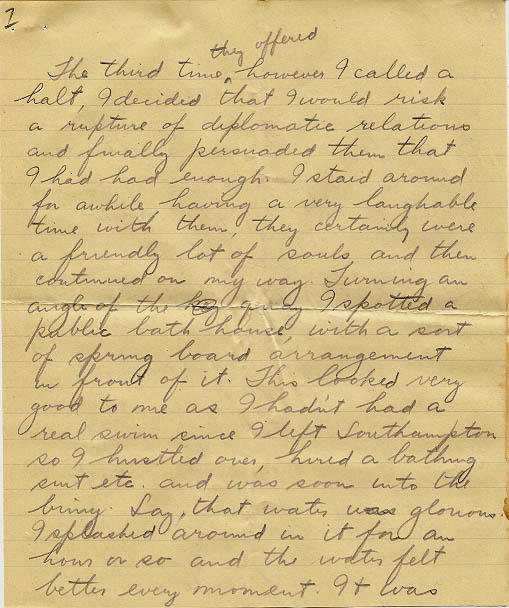 2
they offered
The third time, however I called a
halt, I decided that I would risk
a rupture of diplomatic relations
and finally persuaded them that
I had had enough. I staid around
for awhile having a very laughable
time with them, they certainly were
a friendly lot of souls and then
continued on my way. Turning an
angle of the quay I spotted a
public bath house, with a sort
of spring board arrangement
in front of it. This looked very
good to me as I hadn't had a
real swim since I left Southampton
so I hustled over, hired a bathing
suit etc. and was soon into the
briny. Say, that water was glorious.
I splashed around in it for an
hour or so and the water felt
better every moment. It was